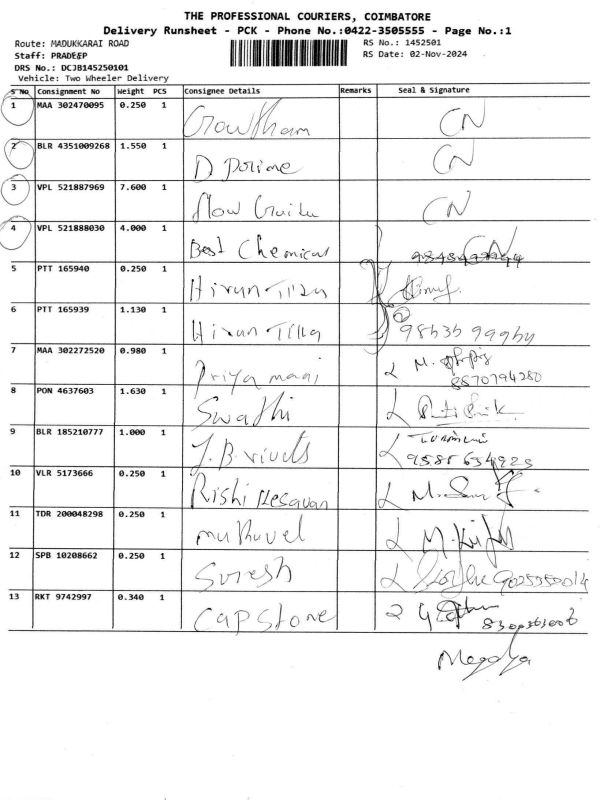 THE PROFESSIONAL COURIERS, COIMBATORE
Delivery Runsheet - PCK - Phone No.:0422-3505555 - Page No.:1
Route: MADUKKARAI ROAD RS No.: 1452501
Staff: PRADEEP RS Date: 02-Nov-2024
DRS No.: DCJB145250101
Vehicle: Two Wheeler Delivery
S No Consignment No Weight PCS Consignee Details Remarks Seal & Signature
1 MAA 302470095 0.250 1 Gowtham CN
2 BLR 4351009268 1.550 1 D CN
3 VPL 521887969 7.600 1 CN
4 VPL 521888030 4.000 1 Best Chemical CN
5 PTT 165940 0.250 1 Hirun
6 PTT 165939 1.130 1 Hirun
7 MAA 302272520 0.980 1 Priya mani M. 8870794280
8 PON 4637603 1.630 1 Swathi
9 BLR 185210777 1.000 1 J.B.
10 VLR 5173666 0.250 1 Rishi Kesavan M.
11 TDR 200048298 0.250 1 muthuvel M.
12 SPB 10208662 0.250 1 Suresh
13 RKT 9742997 0.340 1 Capstone